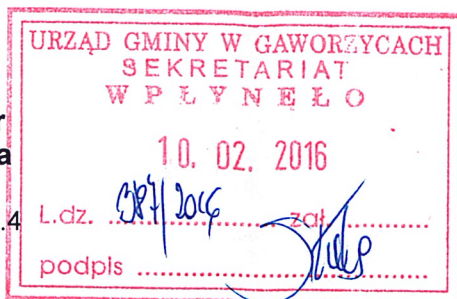 URZĄD GMINY W GAWORZYCACH
SEKRETARIAT
WPŁYNĘŁO
r
a
10. 02. 2016
.4
L.dz. 387/2016 zał.
podpis